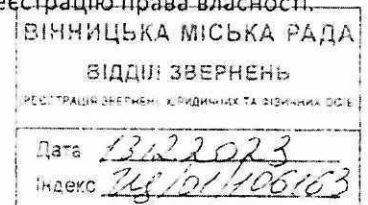 реєстрацію права власності.
ВІННИЦЬКА МІСЬКА РАДА
ВІДДІЛ ЗВЕРНЕНЬ
РЕЄСТРАЦІЯ ЗВЕРНЕНЬ ЮРИДИЧНИХ ТА ФІЗИЧНИХ ОСІБ
Дата 13122023
Індекс /01/106163